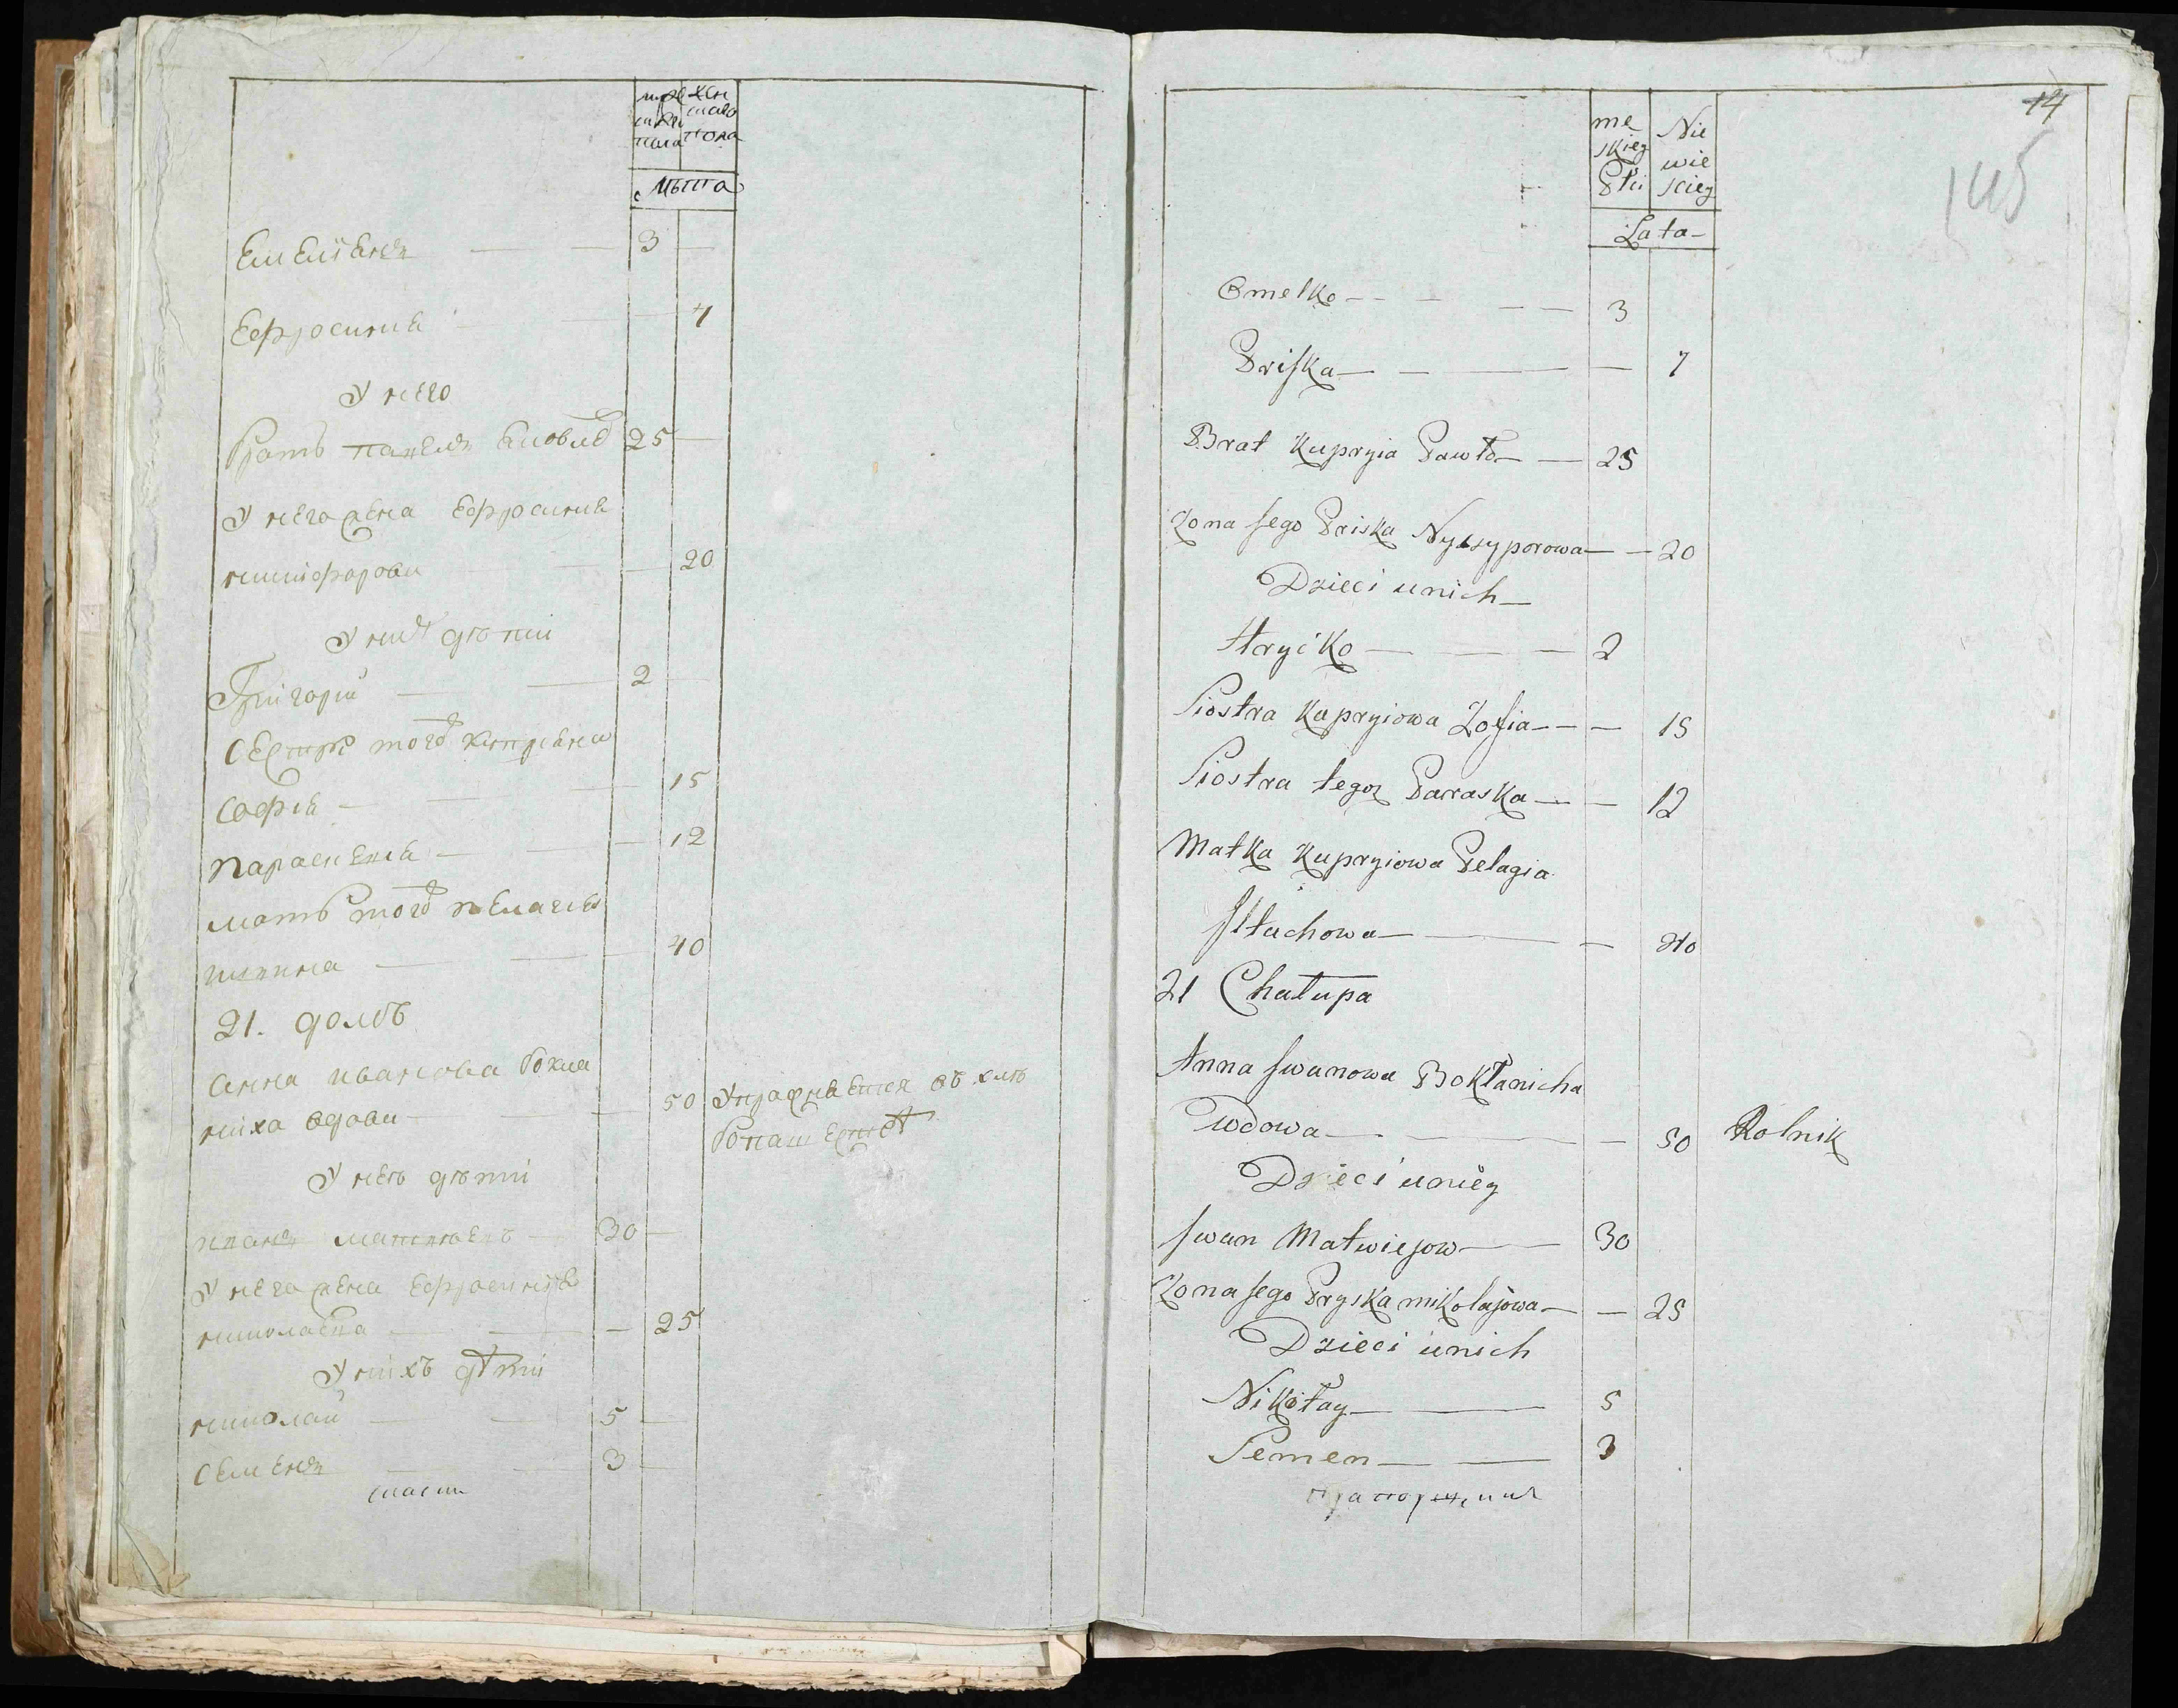 мужеска пола
женскаго пола
лѣта
Емелиянъ — 3 —
Ефросиния — 7
У него
братъ Павелъ Еловцо 25 —
У него жена Ефросиния
никифорова — 20
У них дѣти
Григорий — 2 —
Сестры того киприяна
София — 15
Параскевия — 12
мать того Пелагия
— 40
21. домъ
Анна иванова бокла
ниха вдова — 50 Упражняется въ хлѣ
бопашествѣ
У нее дѣти
иванъ матвѣевъ — 30 —
У него жена Ефросиния
николаева — 25
У нихъ дѣти
николай — 5 —
Семенъ — 3 —
14
145
męskieg Płci
Niewiescieg
Lata
Omelko — 3
Priska — 7
Brat Kupryia Pawło — 25
Zona Jego Priska Nyczyporowa — 20
Dzieci u nich
Hryćko — 2
Siostra Kupryiowa Zofia — 15
Siostra tegoz Paraska — 12
Matka Kupryiowa Pelagia
Iliachowa — 40
21 Chałupa
Anna Jwanowa Bokłanicha
Wdowa — 50 Rolnik
Dzieci u nieg
Jwan Matwiejow — 30
Zona Jego Pryska mikołajowa — 25
Dzieci u nich
Nikołay — 5
Semen — 3